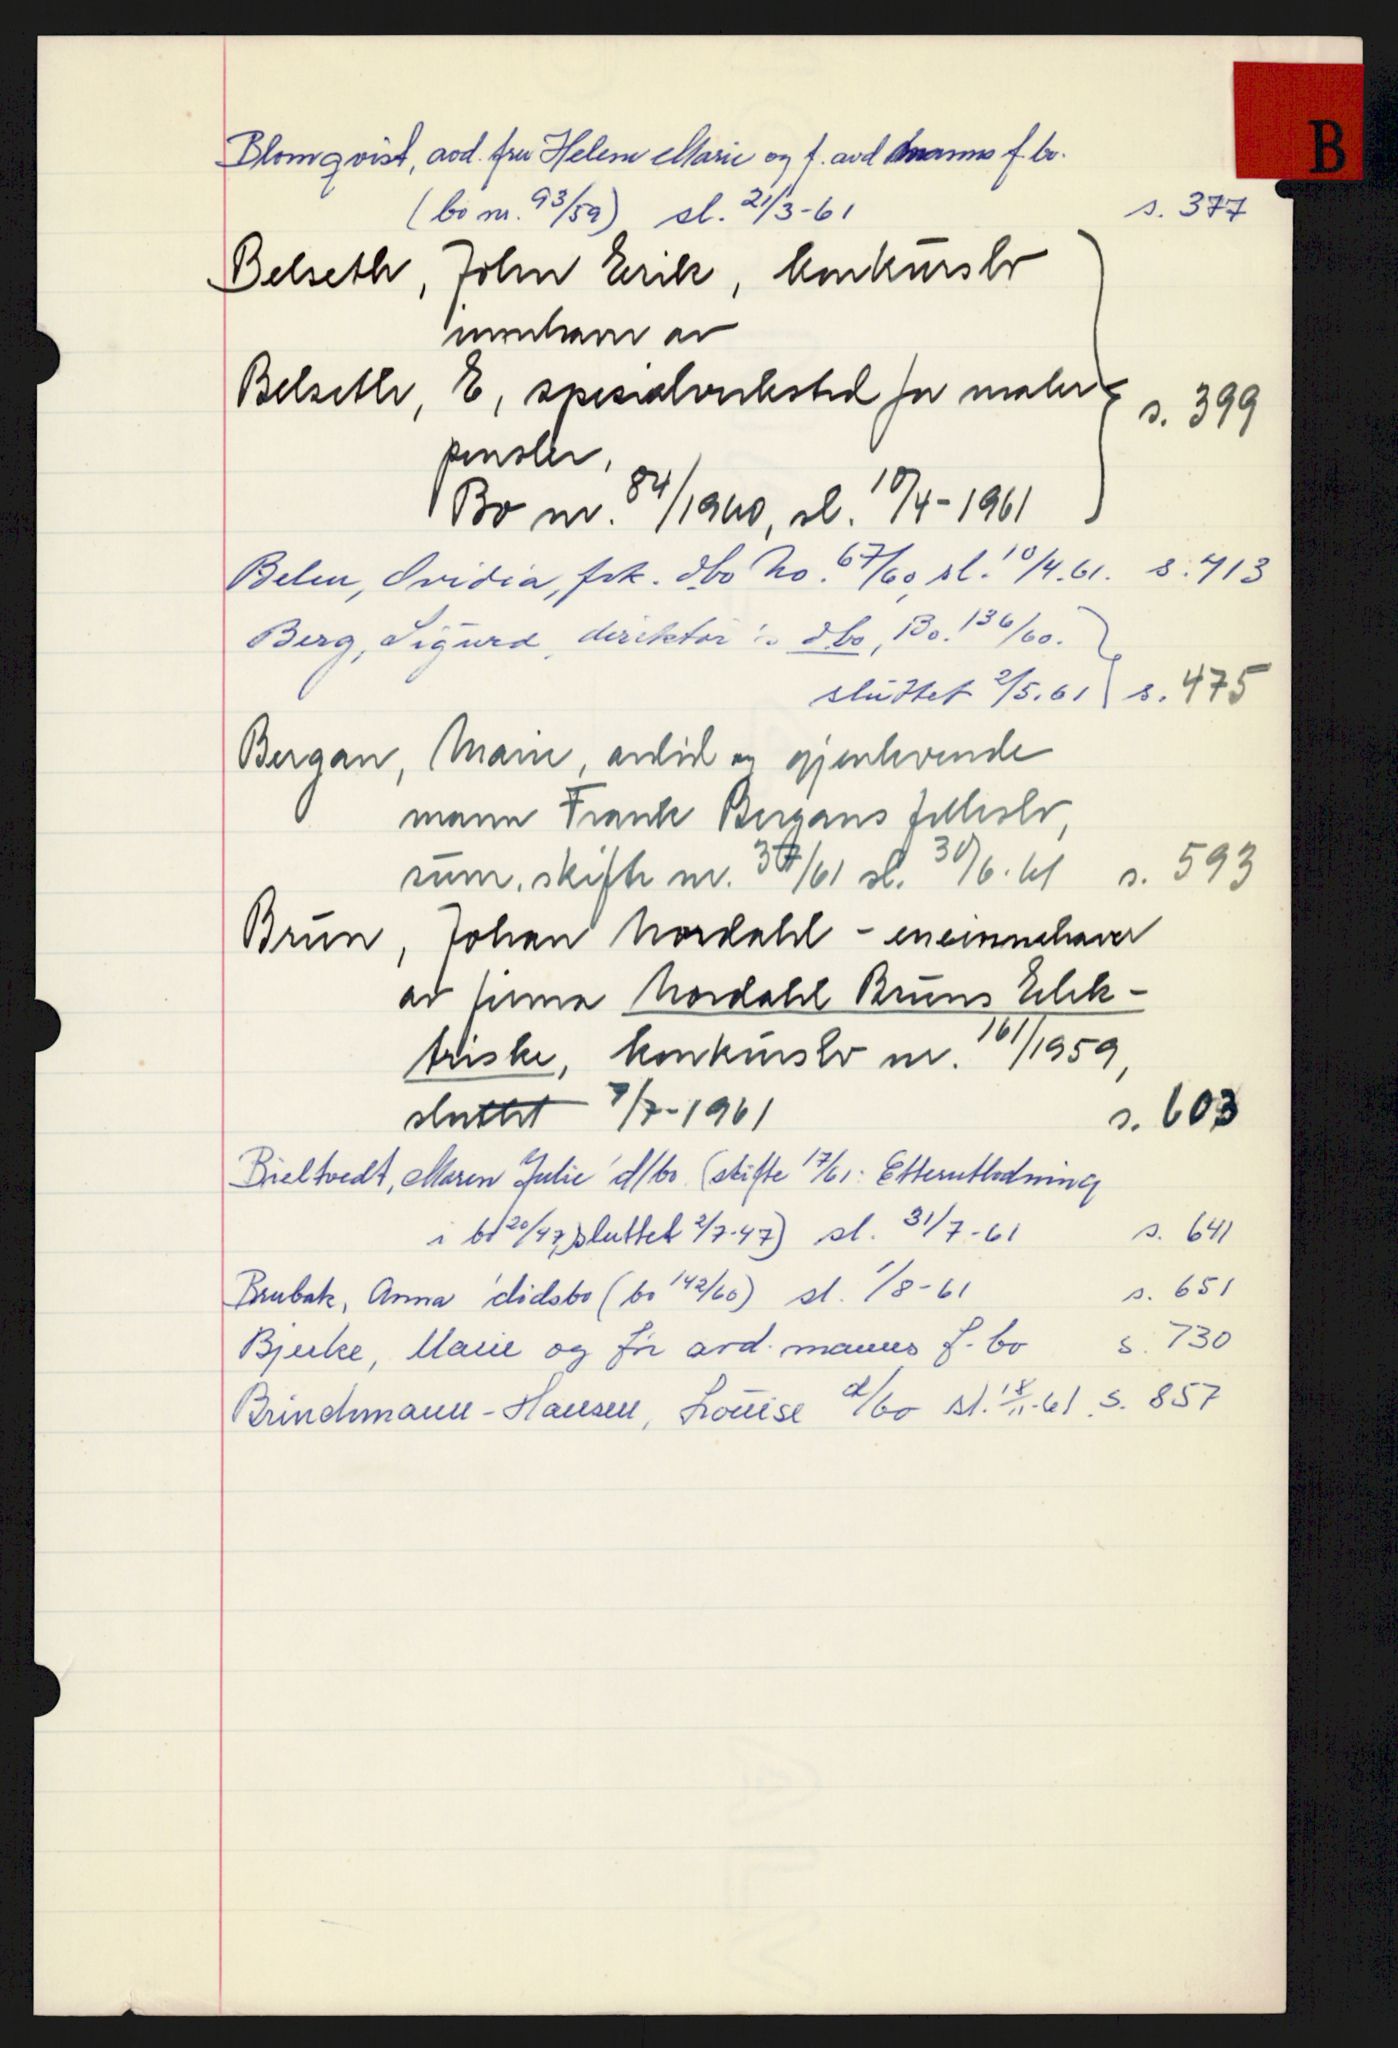 B
Blomqvist, avd. fru Helene Marie og f. avd manns f.bo.
(bo nr. 93/59) sl. 21/3-61 s. 377
Belseth, John Erik, konkursbo
innehaver av
Belseth, E, spesialverksted for maler
pensler, s. 399
Bo nr. 84/1960, sl. 10/4-1961
Belen, Ovidia, frk. dbo No. 67/60, sl. 10/4.61. s. 413
Berg, Sigurd, direktør's dbo, Bo. 136/60.
sluttet 2/5.61 s. 475
Bergan, Marie, avdød og gjenlevende
mann Frank Bergans fellesbo,
sum. skifte nr. 37/61 sl. 30/6.61 s. 593
Brun, Johan Nordahl - eneinnehaver
av firma Nordahl Bruns Elek-
triske, konkursbo nr. 161/1959,
sluttet 7/7-1961 s. 603
Bieltvedt, Maren Julie' d/bo (skifte 17/61: Etterutlodning
i bo 20/47, sluttet 2/7-47) sl. 31/7-61 s. 641
Brubak, Anna 'dødsbo (bo 142/60) sl. 1/8-61 s. 651
Bjerke, Marie og før avd. manns f. bo s. 730
Brinchmann-Hansen, Louise d/bo sl. 18/11-61 s. 857